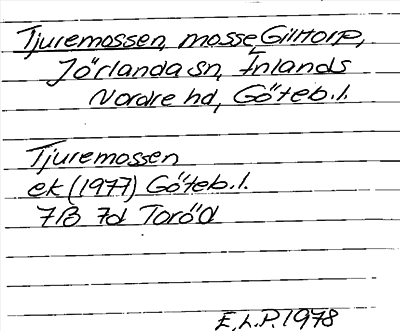 Tjuremossen, mosse Gilltorp,
Jörlanda sn, Inlands
Nordre hd, Göteb. l.
Tjuremossen
ek (1977) Göteb. l.
7B 7d
E.L.P. 1978